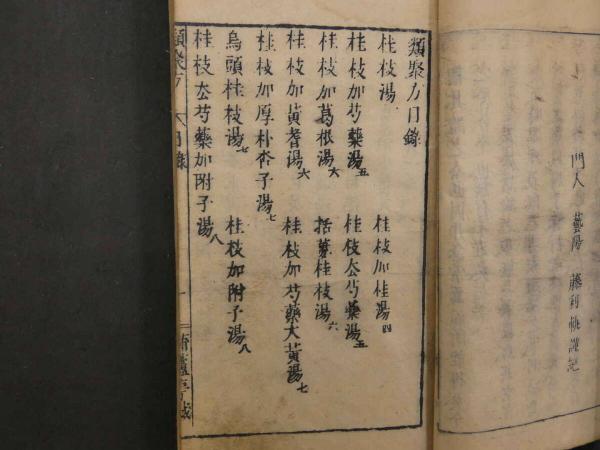 門人 藝陽 藤 謹記
類聚方目錄
桂枝湯 桂枝加桂湯四
桂枝加芍藥湯五 桂枝厺芍藥湯五
桂枝加葛根湯六 括蔞桂枝湯六
桂枝加黃耆湯六 桂枝加芍藥大黃湯七
桂枝加厚朴杏子湯七
烏頭桂枝湯七 桂枝加附子湯八
桂枝厺芍藥加附子湯八
類聚方 目錄 一